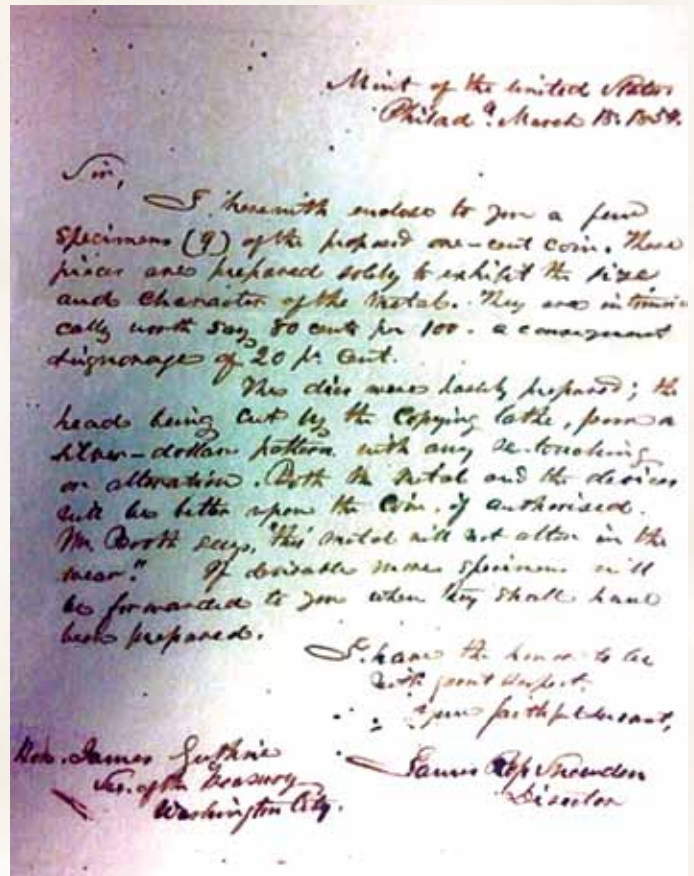 Mint of the United States
Philada. March 18. 1854.
Sir,
I herewith enclose to you a few
specimens (9) of the proposed one-cent coin. These
pieces are prepared solely to exhibit the size
and character of the metal. They are intrinsi
cally worth say 80 cents per 100 - a consequent
of 20 pr. cent.
The dies were hastily prepared; the
head being cut by the copying lathe, from a
silver-dollar pattern with any re-touching
or alteration. Both the metal and the devices
will be better upon the coin, if authorised.
Mr. Booth says, "this metal will not alter in the
wear." If desirable more specimens will
be forwarded to you when they shall have
been prepared.
I have the honor to be
with great respect,
Your faithful servant,
James Ross Snowden
Director
Hon. James Guthrie
Sec. of the Treasury
Washington City.